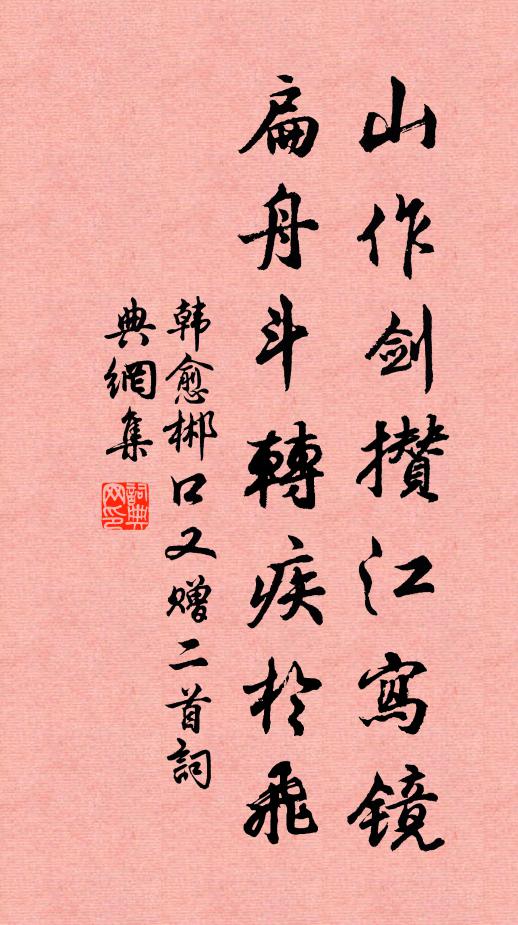 山作剑攅江寫镜
扁舟斗轉疾於飛
韩愈郴口又赠二首詞
典網集
詞典网印